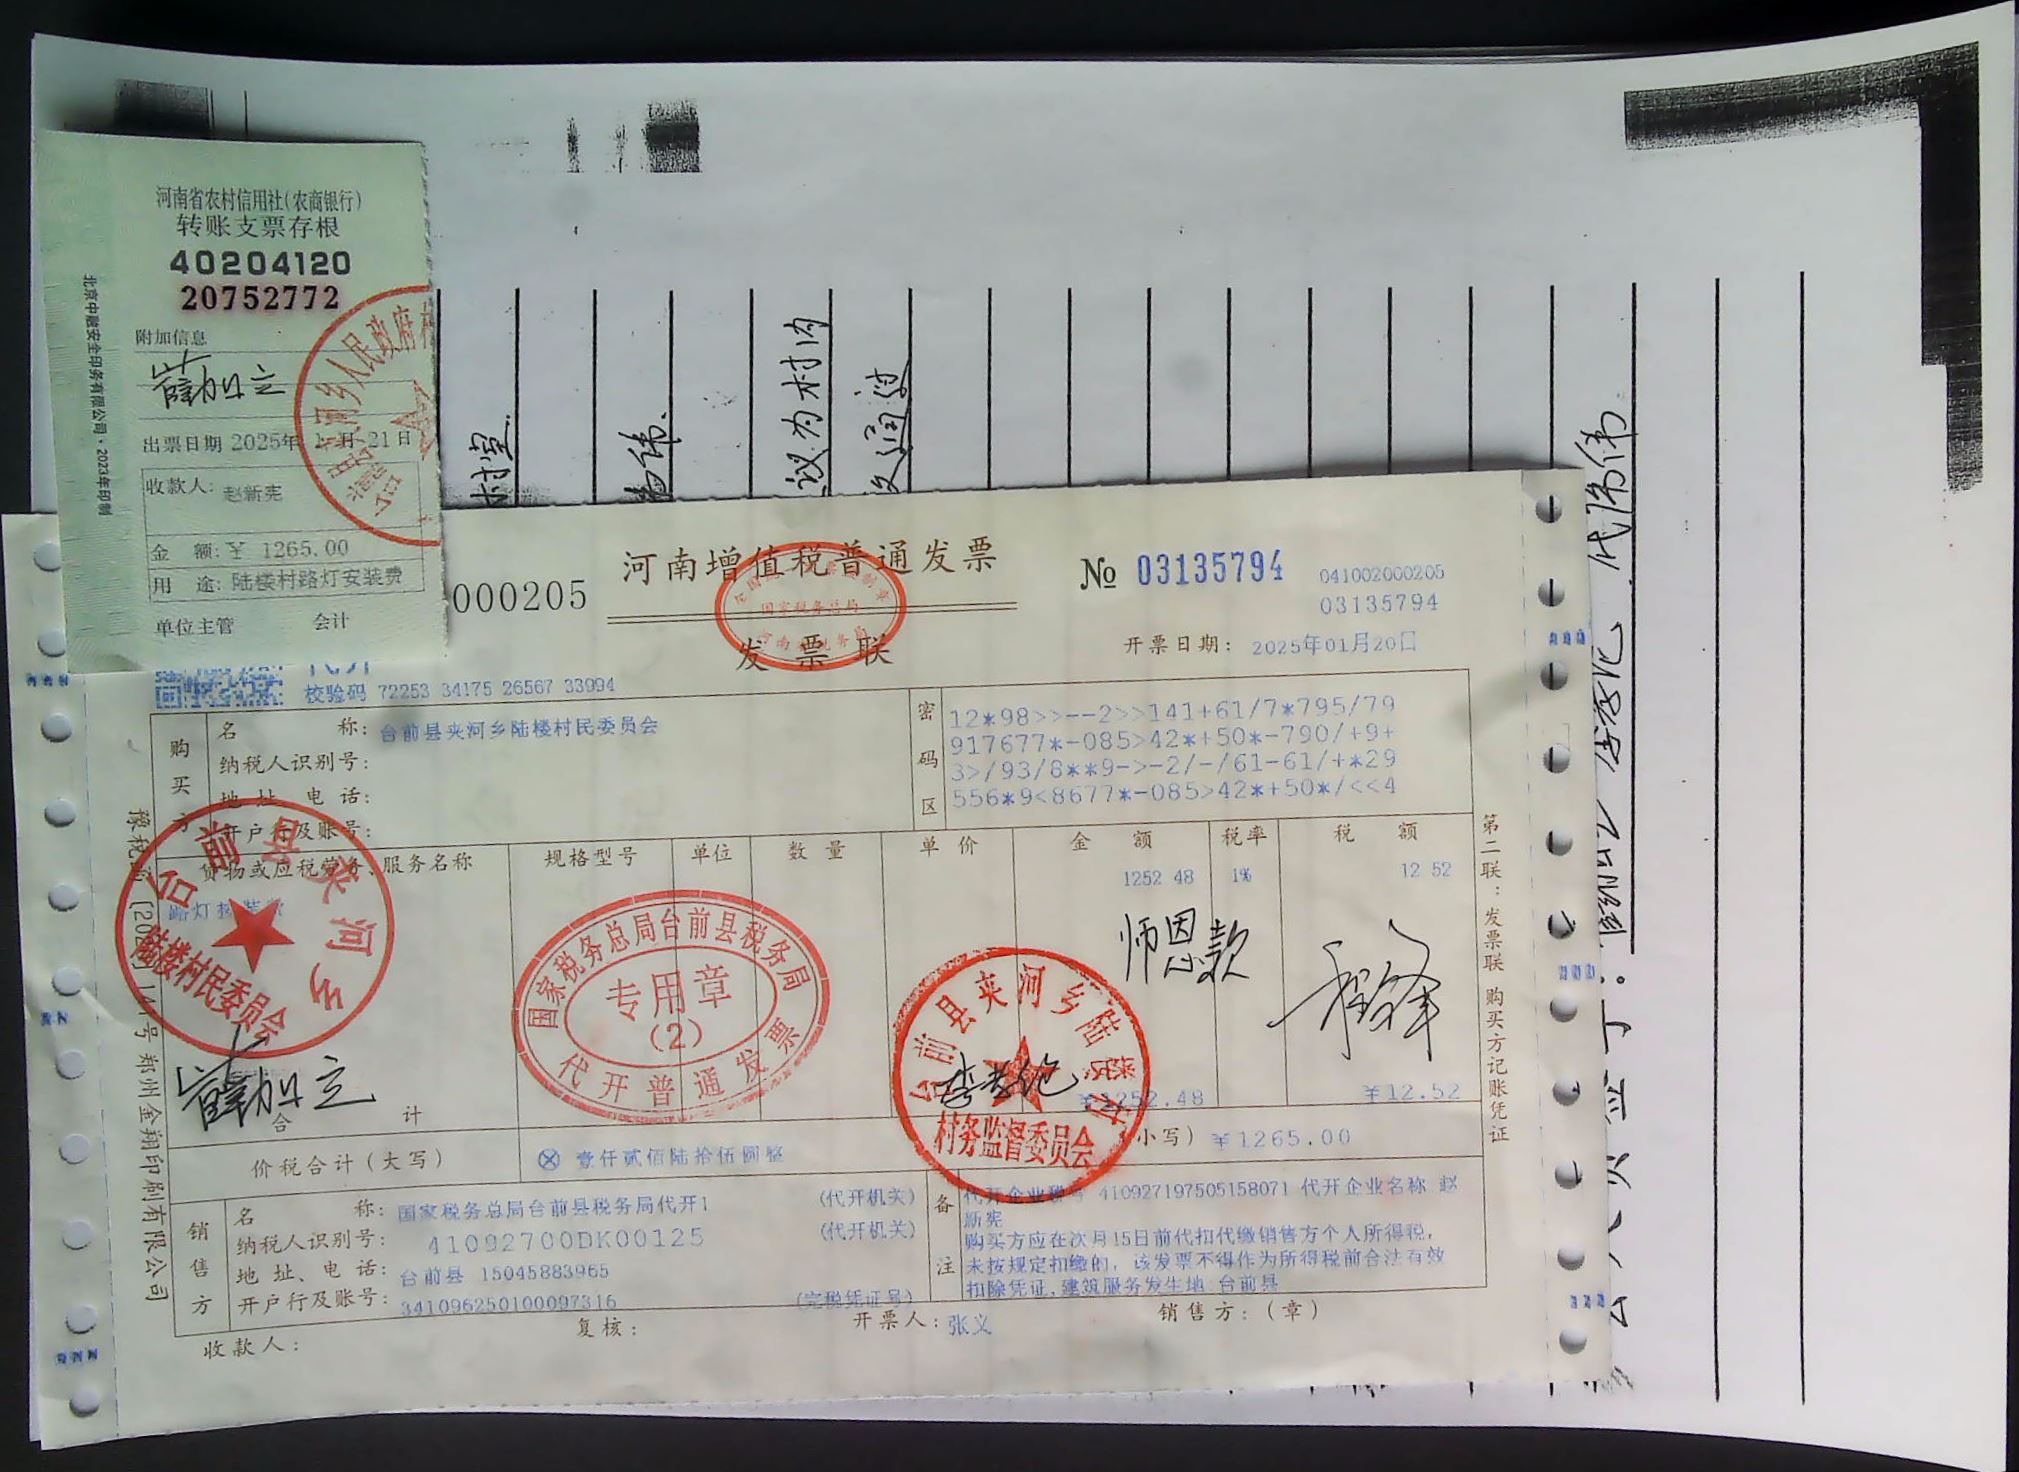 河南省农村信用社(农商银行)
转账支票存根
40204120
20752772
附加信息
薛加立
出票日期 2025年1月21日
收款人: 赵新宪
金 额: ¥ 1265.00
用 途: 陆楼村路灯安装费
单位主管 会计
北京中融安全印务有限公司·2023年印制
000205
河南增值税普通发票
发票联
国家税务总局
№ 03135794
041002000205
03135794
开票日期: 2025年01月20日
校验码 72253 34175 26567 33994
购买方
名 称: 台前县夹河乡陆楼村民委员会
纳税人识别号:
地址、电话:
开户行及账号:
密码区
12*98>>--2>>141+61/7*795/79
917677*-085>42*+50*-790/+9+
3>/93/8**9->-2/-/61-61/+*29
556*9<8677*-085>42*+50*/<<4
货物或应税劳务、服务名称 规格型号 单位 数量 单价 金额 税率 税额
1252.48 1% 12.52
师恩款
台前县夹河乡
陆楼村民委员会
国家税务总局台前县税务局
专用章
(2)
代开普通发票
台前县夹河乡陆楼村
村务监督委员会
薛加立
合 计 ¥1252.48 ¥12.52
价税合计(大写) ⊗ 壹仟贰佰陆拾伍圆整 (小写) ¥1265.00
销售方
名 称: 国家税务总局台前县税务局代开1 (代开机关)
纳税人识别号: 41092700DK00125 (代开机关)
地址、电话: 台前县 15045883965
开户行及账号: 341096250100097316 (完税凭证号)
备注
代开企业税号 410927197505158071 代开企业名称 赵
新宪
购买方应在次月15日前代扣代缴销售方个人所得税,
未按规定扣缴的, 该发票不得作为所得税前合法有效
扣除凭证,建筑服务发生地:台前县
收款人: 复核: 开票人: 张义 销售方: (章)
第二联: 发票联 购买方记账凭证
郑州金翔印刷有限公司
议为村内